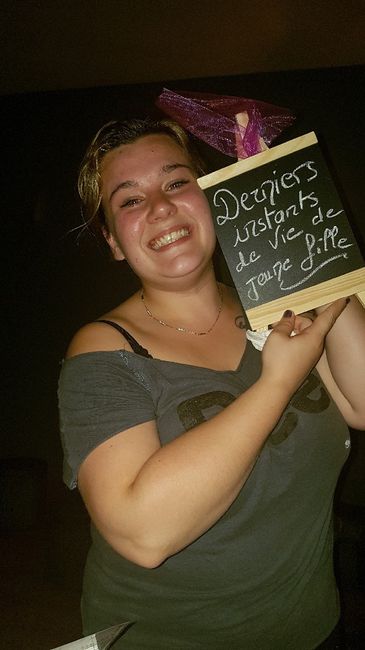 Derniers
instants
de vie de
jeune fille